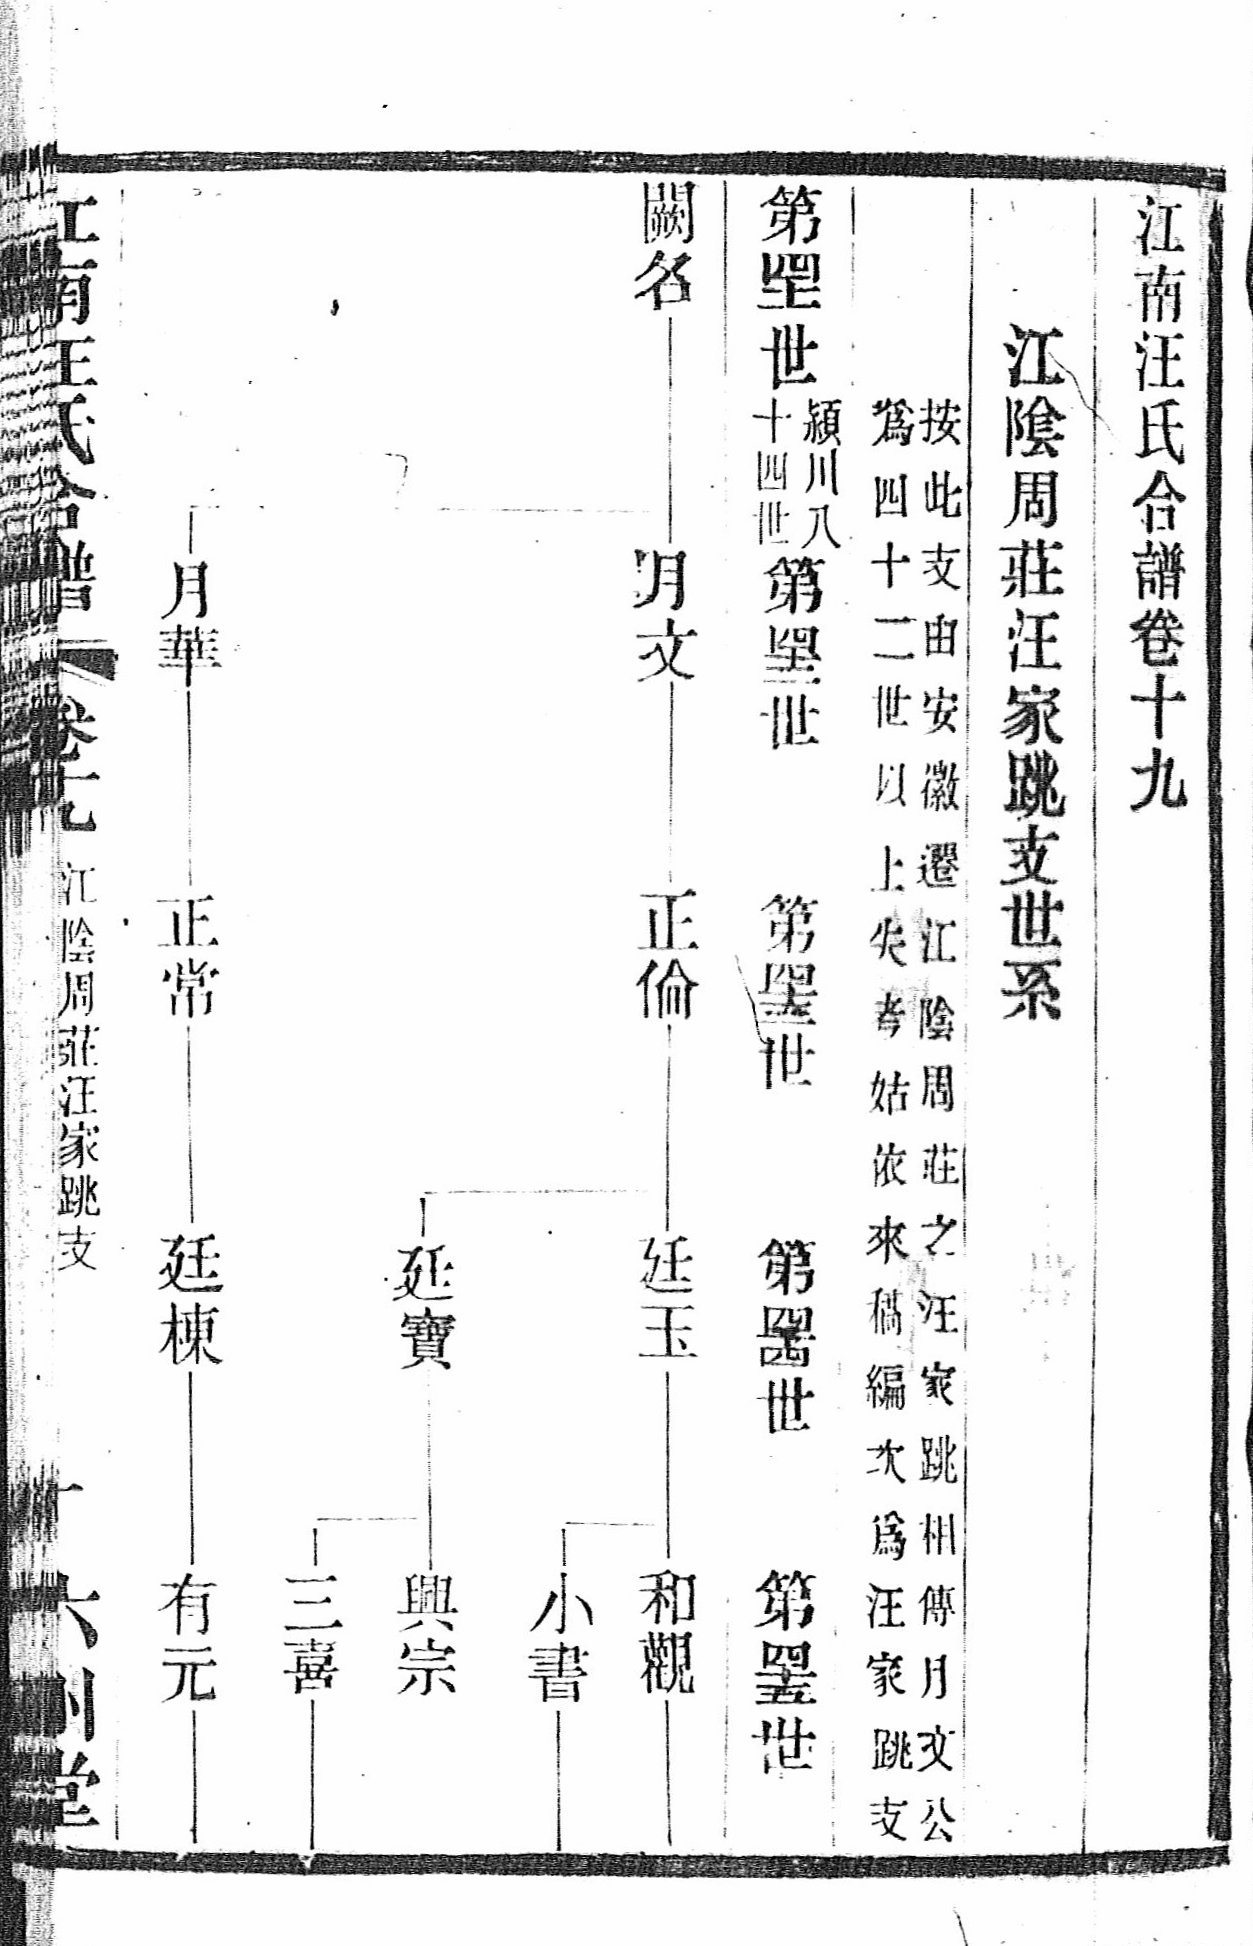 江南汪氏合譜卷十九
江陰周莊汪家跳支世系
按此支由安徽遷江陰周莊之汪家跳相傳月文公
爲四十二世以上失考姑依來稿編次爲汪家跳支
第四十一世
潁川八
十四世
第四十二世
第四十三世
第四十四世
第四十五世
闕名
月文
正倫
廷玉
和觀
小書
延寶
興宗
三喜
月華
正常
廷棟
有元
江南汪氏合譜
卷十九
江陰周莊汪家跳支